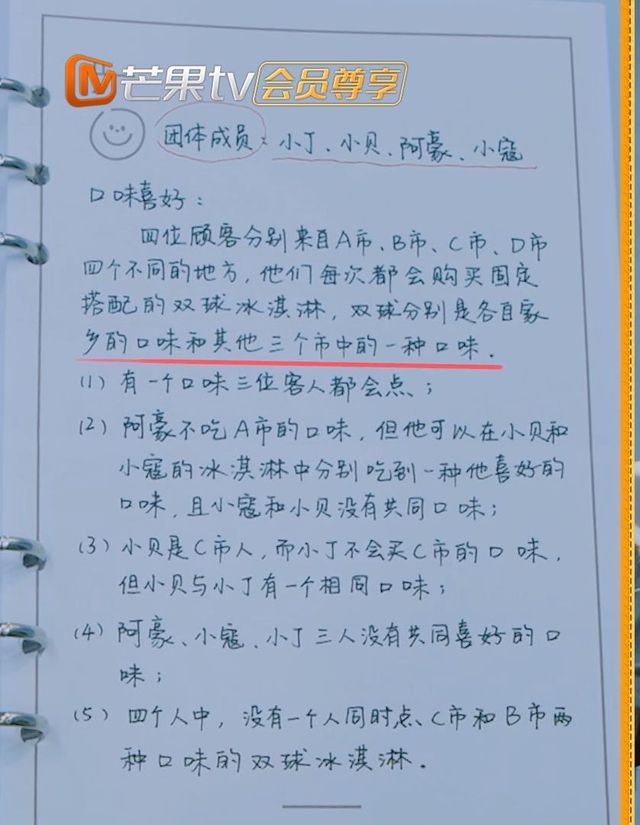 芒果tv 会员尊享
团体成员：小丁、小贝、阿豪、小寇
口味喜好：
四位顾客分别来自A市、B市、C市、D市
四个不同的地方，他们每次都会购买固定
搭配的双球冰淇淋，双球分别是各自家
乡的口味和其他三个市中的一种口味．
(1) 有一个口味三位客人都会点；
(2) 阿豪不吃A市的口味，但他可以在小贝和
小寇的冰淇淋中分别吃到一种他喜好的
口味，且小寇和小贝没有共同口味；
(3) 小贝是C市人，而小丁不会买C市的口味，
但小贝与小丁有一个相同口味；
(4) 阿豪、小寇、小丁三人没有共同喜好的口
味；
(5) 四个人中，没有一个人同时点C市和B市两
种口味的双球冰淇淋．